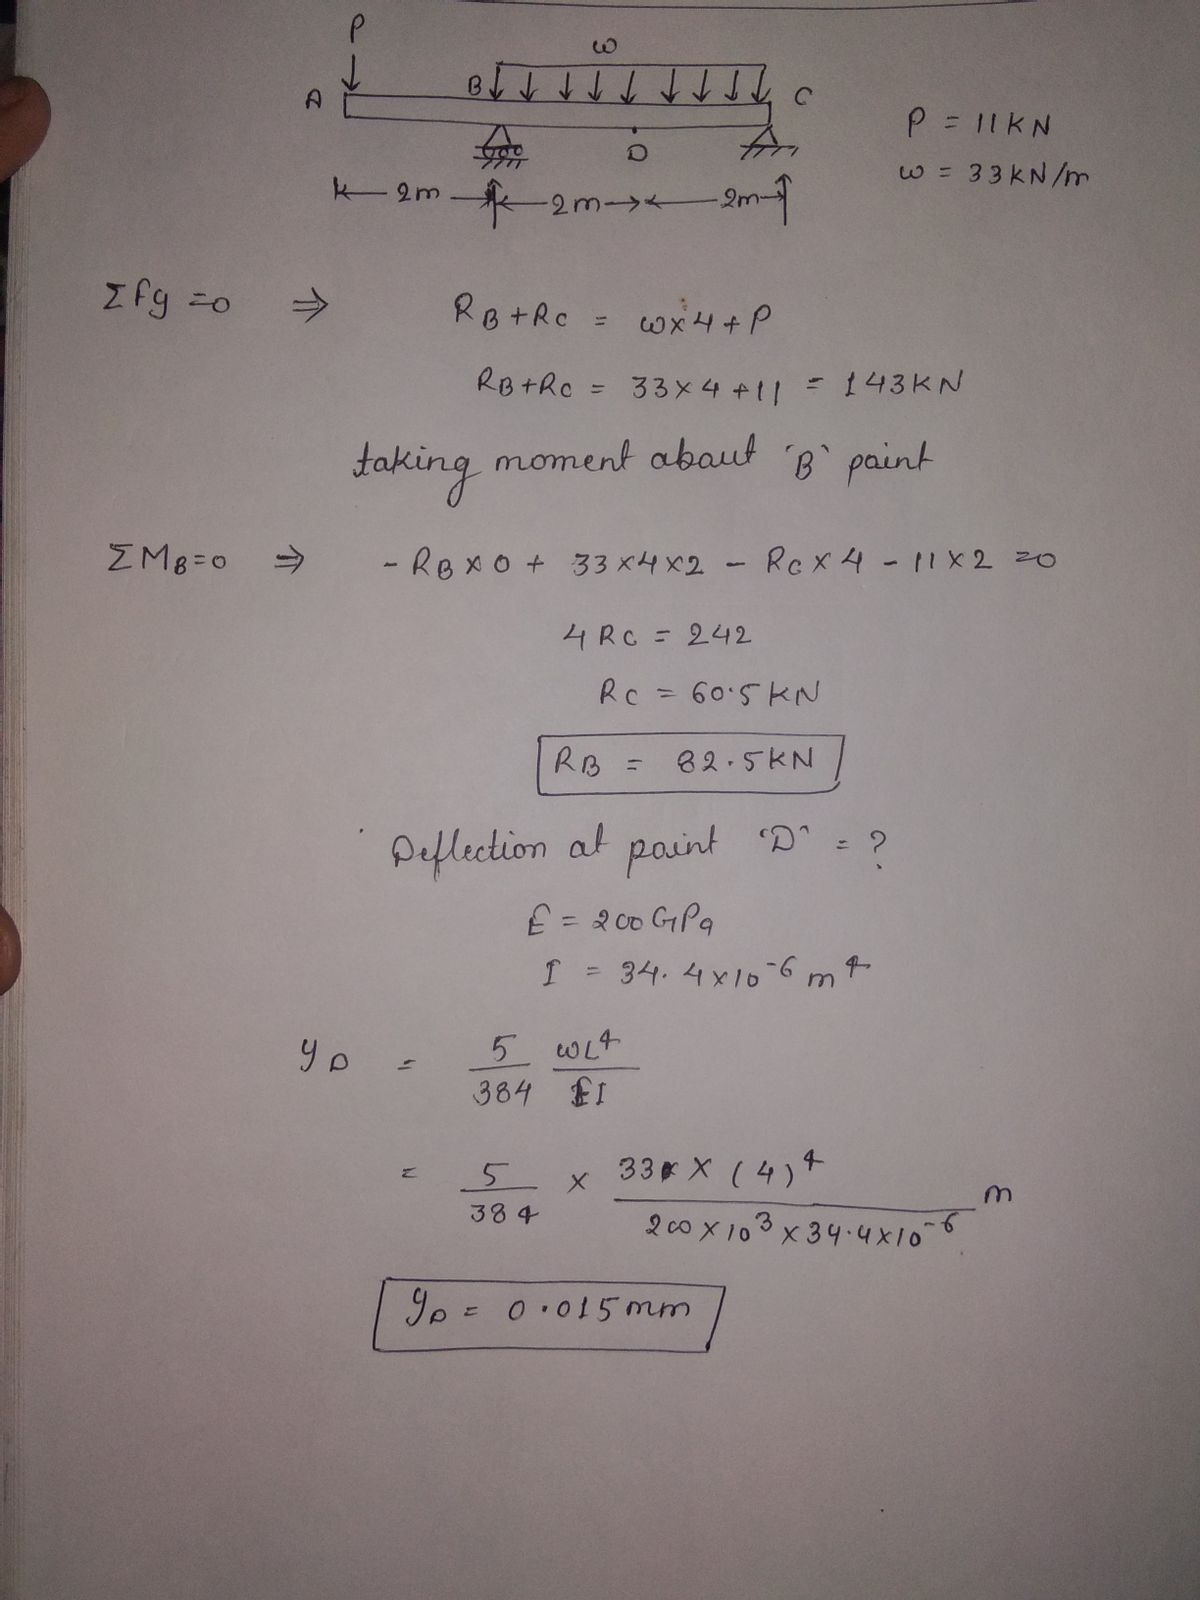 P
w
A B C
D
2m 2m 2m
P = 11KN
w = 33KN/m
Σfy =0 ⇒ RB+RC = w×4+P
RB+RC = 33×4+11 = 143KN
taking moment about 'B' point
ΣMB=0 ⇒ -RB×0 + 33×4×2 - RC×4 - 11×2 =0
4RC = 242
RC = 60.5KN
RB = 82.5KN
Deflection at point 'D' = ?
E = 200GPa
I = 34.4×10⁻⁶ m⁴
yD = 5/384 wL⁴/EI
= 5/384 × 33××(4)⁴/200×10³×34.4×10⁻⁶ m
yD = 0.015mm